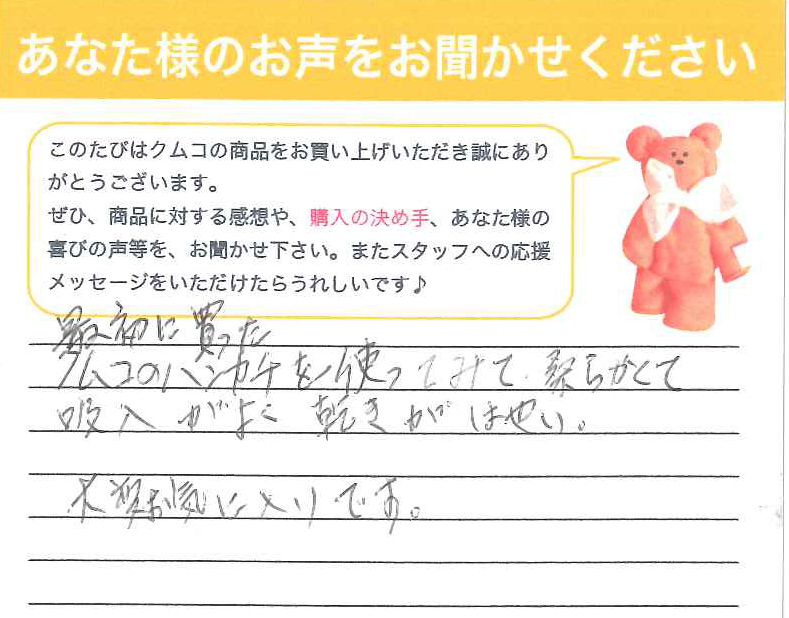 あなた様のお声をお聞かせください
このたびはクムコの商品をお買い上げいただき誠にあり
がとうございます。
ぜひ、商品に対する感想や、購入の決め手、あなた様の
喜びの声等を、お聞かせ下さい。またスタッフへの応援
メッセージをいただけたらうれしいです♪
最初に買った
クムコのハンカチを使ってみて、柔らかくて
吸入がよく乾きがはやい。
大変お気に入りです。